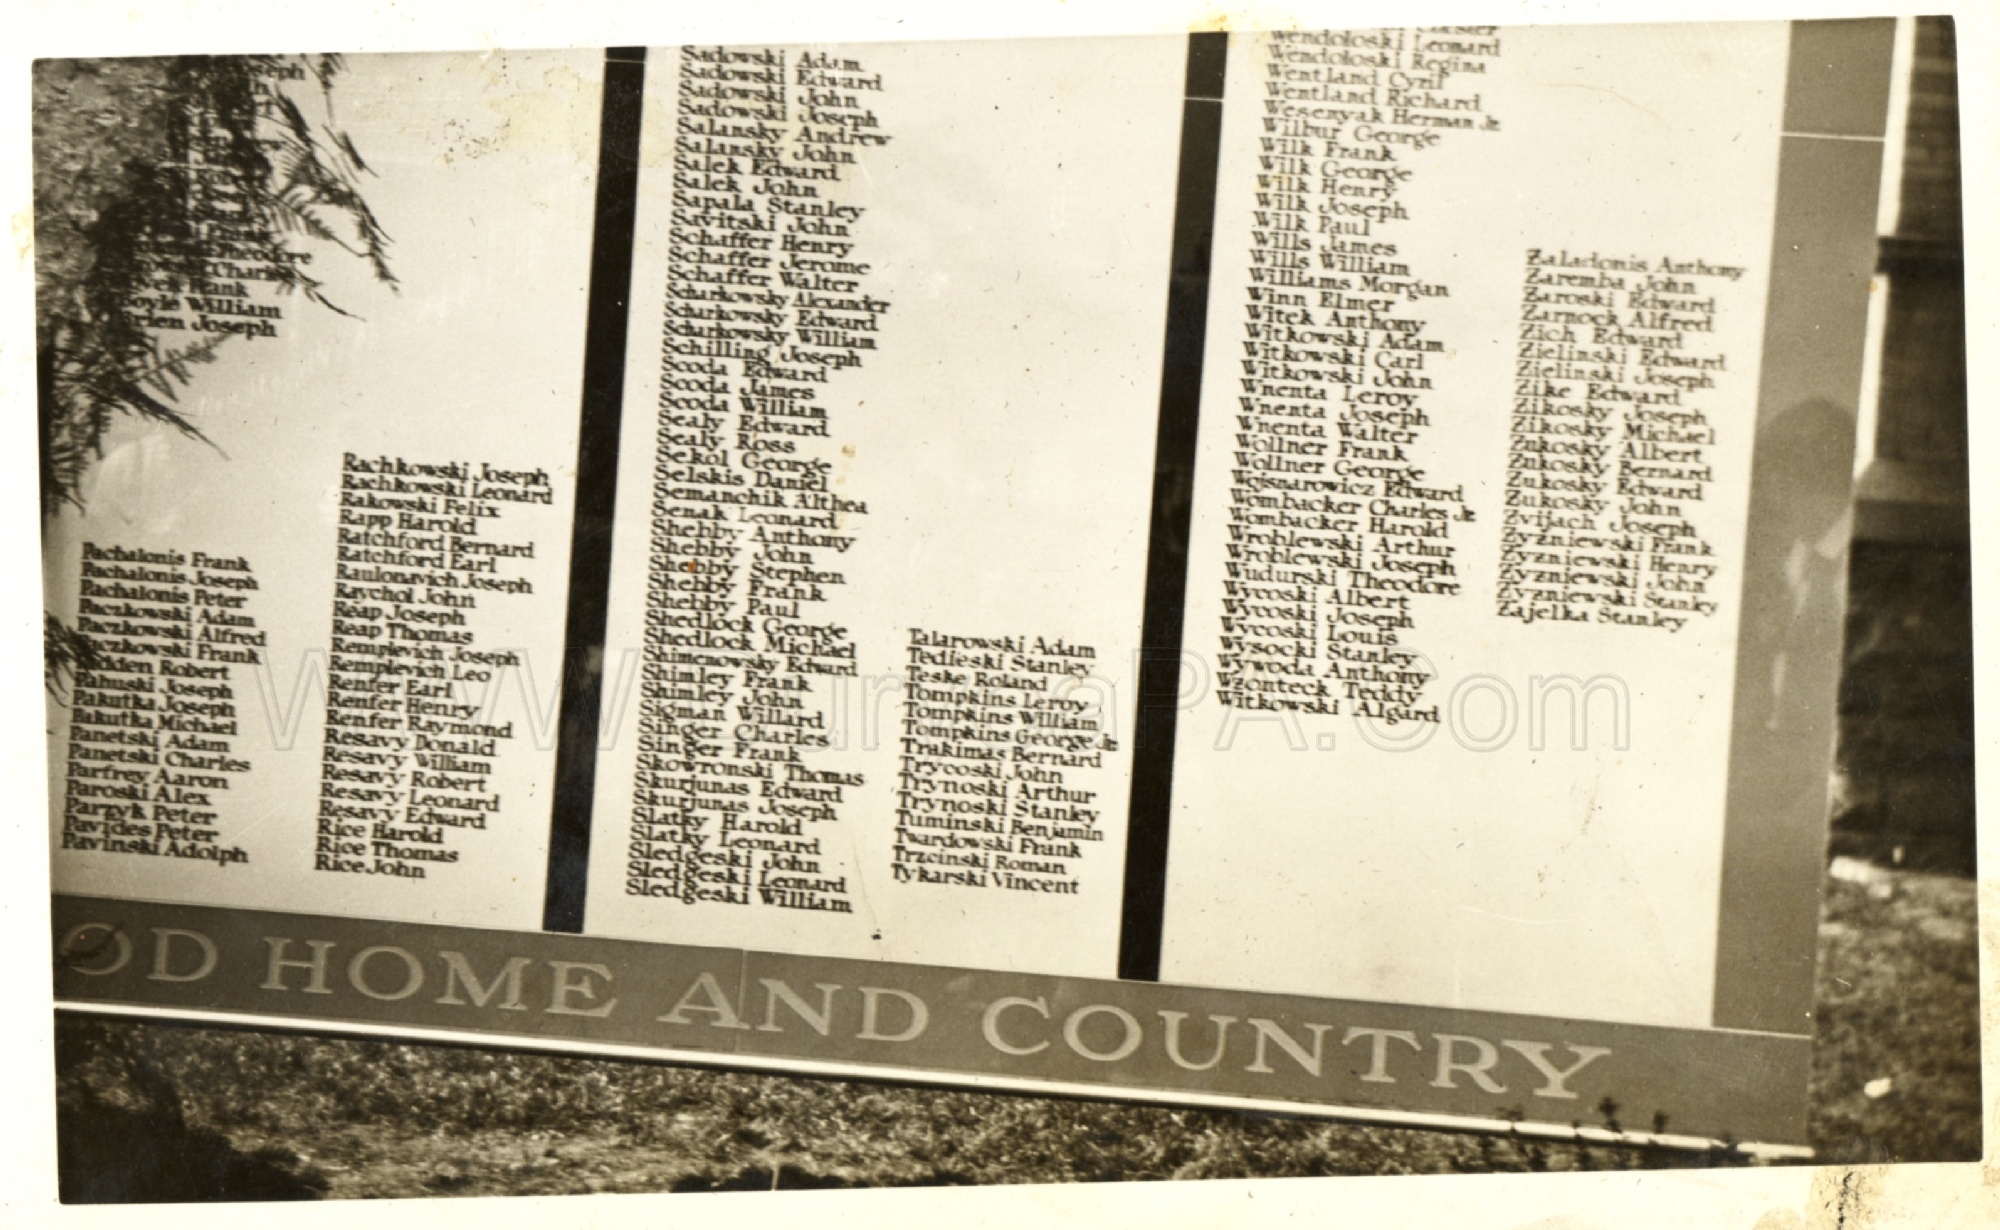 Joseph
Theodore
Frank
Boyle William
Joseph
Pachalonis Frank
Pachalonis Joseph
Pachalonis Peter
Paczkowski Adam
Paczkowski Alfred
Paczkowski Frank
Robert
Pahuski Joseph
Pakutka Joseph
Pakutka Michael
Panetski Adam
Panetski Charles
Parfrey Aaron
Paroski Alex
Parzyk Peter
Pavides Peter
Pavinski Adolph
Rachkowski Joseph
Rachkowski Leonard
Rakowski Felix
Rapp Harold
Ratchford Bernard
Ratchford Earl
Raulonavich Joseph
Raychol John
Reap Joseph
Reap Thomas
Remplevich Joseph
Remplevich Leo
Renfer Earl
Renfer Henry
Renfer Raymond
Resavy Donald
Resavy William
Resavy Robert
Resavy Leonard
Resavy Edward
Rice Harold
Rice Thomas
Rice John
Sadowski Adam
Sadowski Edward
Sadowski John
Sadowski Joseph
Salansky Andrew
Salansky John
Salek Edward
Salek John
Sapala Stanley
Savitski John
Schaffer Henry
Schaffer Jerome
Schaffer Walter
Scharkowsky Alexander
Scharkowsky Edward
Scharkowsky William
Schilling Joseph
Scoda Edward
Scoda James
Scoda William
Sealy Edward
Sealy Ross
Sekol George
Selskis Daniel
Semanchik Althea
Senak Leonard
Shebby Anthony
Shebby John
Shebby Stephen
Shebby Frank
Shebby Paul
Shedlock George
Shedlock Michael
Shimenowsky Edward
Shimley Frank
Shimley John
Sigman Willard
Singer Charles
Singer Frank
Skowronski Thomas
Skurjunas Edward
Skurjunas Joseph
Slatky Harold
Slatky Leonard
Sledgeski John
Sledgeski Leonard
Sledgeski William
Talarowski Adam
Tedieski Stanley
Teske Roland
Tompkins Leroy
Tompkins William
Tompkins George Jr.
Trakimas Bernard
Trycoski John
Trynoski Arthur
Trynoski Stanley
Tuminski Benjamin
Twardowski Frank
Trzcinski Roman
Tykarski Vincent
Wendoloski Leonard
Wendoloski Regina
Wentland Cyril
Wentland Richard
Wesenyak Herman Jr.
Wilbur George
Wilk Frank
Wilk George
Wilk Henry
Wilk Joseph
Wilk Paul
Wills James
Wills William
Williams Morgan
Winn Elmer
Witek Anthony
Witkowski Adam
Witkowski Carl
Witkowski John
Wnenta Leroy
Wnenta Joseph
Wnenta Walter
Wollner Frank
Wollner George
Wojsnarowicz Edward
Wombacker Charles Jr.
Wombacker Harold
Wroblewski Arthur
Wroblewski Joseph
Wudurski Theodore
Wycoski Albert
Wycoski Joseph
Wycoski Louis
Wysocki Stanley
Wywoda Anthony
Wzonteck Teddy
Witkowski Algard
Zaladonis Anthony
Zaremba John
Zaroski Edward
Zarnock Alfred
Zich Edward
Zielinski Edward
Zielinski Joseph
Zilke Edward
Zikosky Joseph
Zikosky Michael
Znkosky Albert
Znkosky Bernard
Zukosky Edward
Zukosky John
Zvijach Joseph
Zyzniewski Frank
Zyzniewski Henry
Zyzniewski John
Zyzniewski Stanley
Zajelka Stanley
OD HOME AND COUNTRY